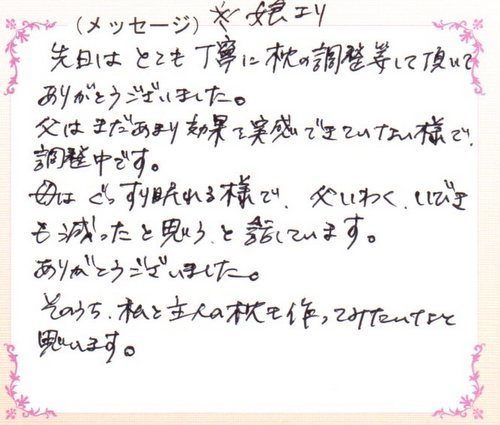 (メッセージ) ※ 娘より
先日は とても丁寧に枕の調整等して頂いて
ありがとうございました。
父はまだあまり効果を実感できていない様で、
調整中です。
母は ぐっすり眠れる様で、父いわく、いびき
も減ったと思う、と話しています。
ありがとうございました。
そのうち、私と主人の枕も作ってみたいなと
思います。